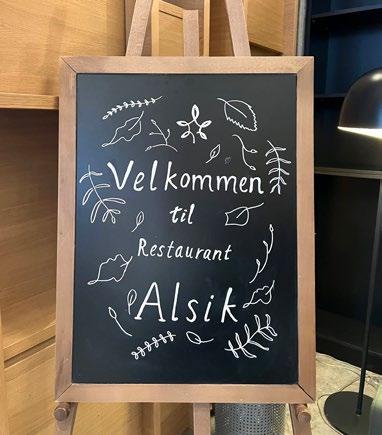 Velkommen
til
Restaurant
Alsik